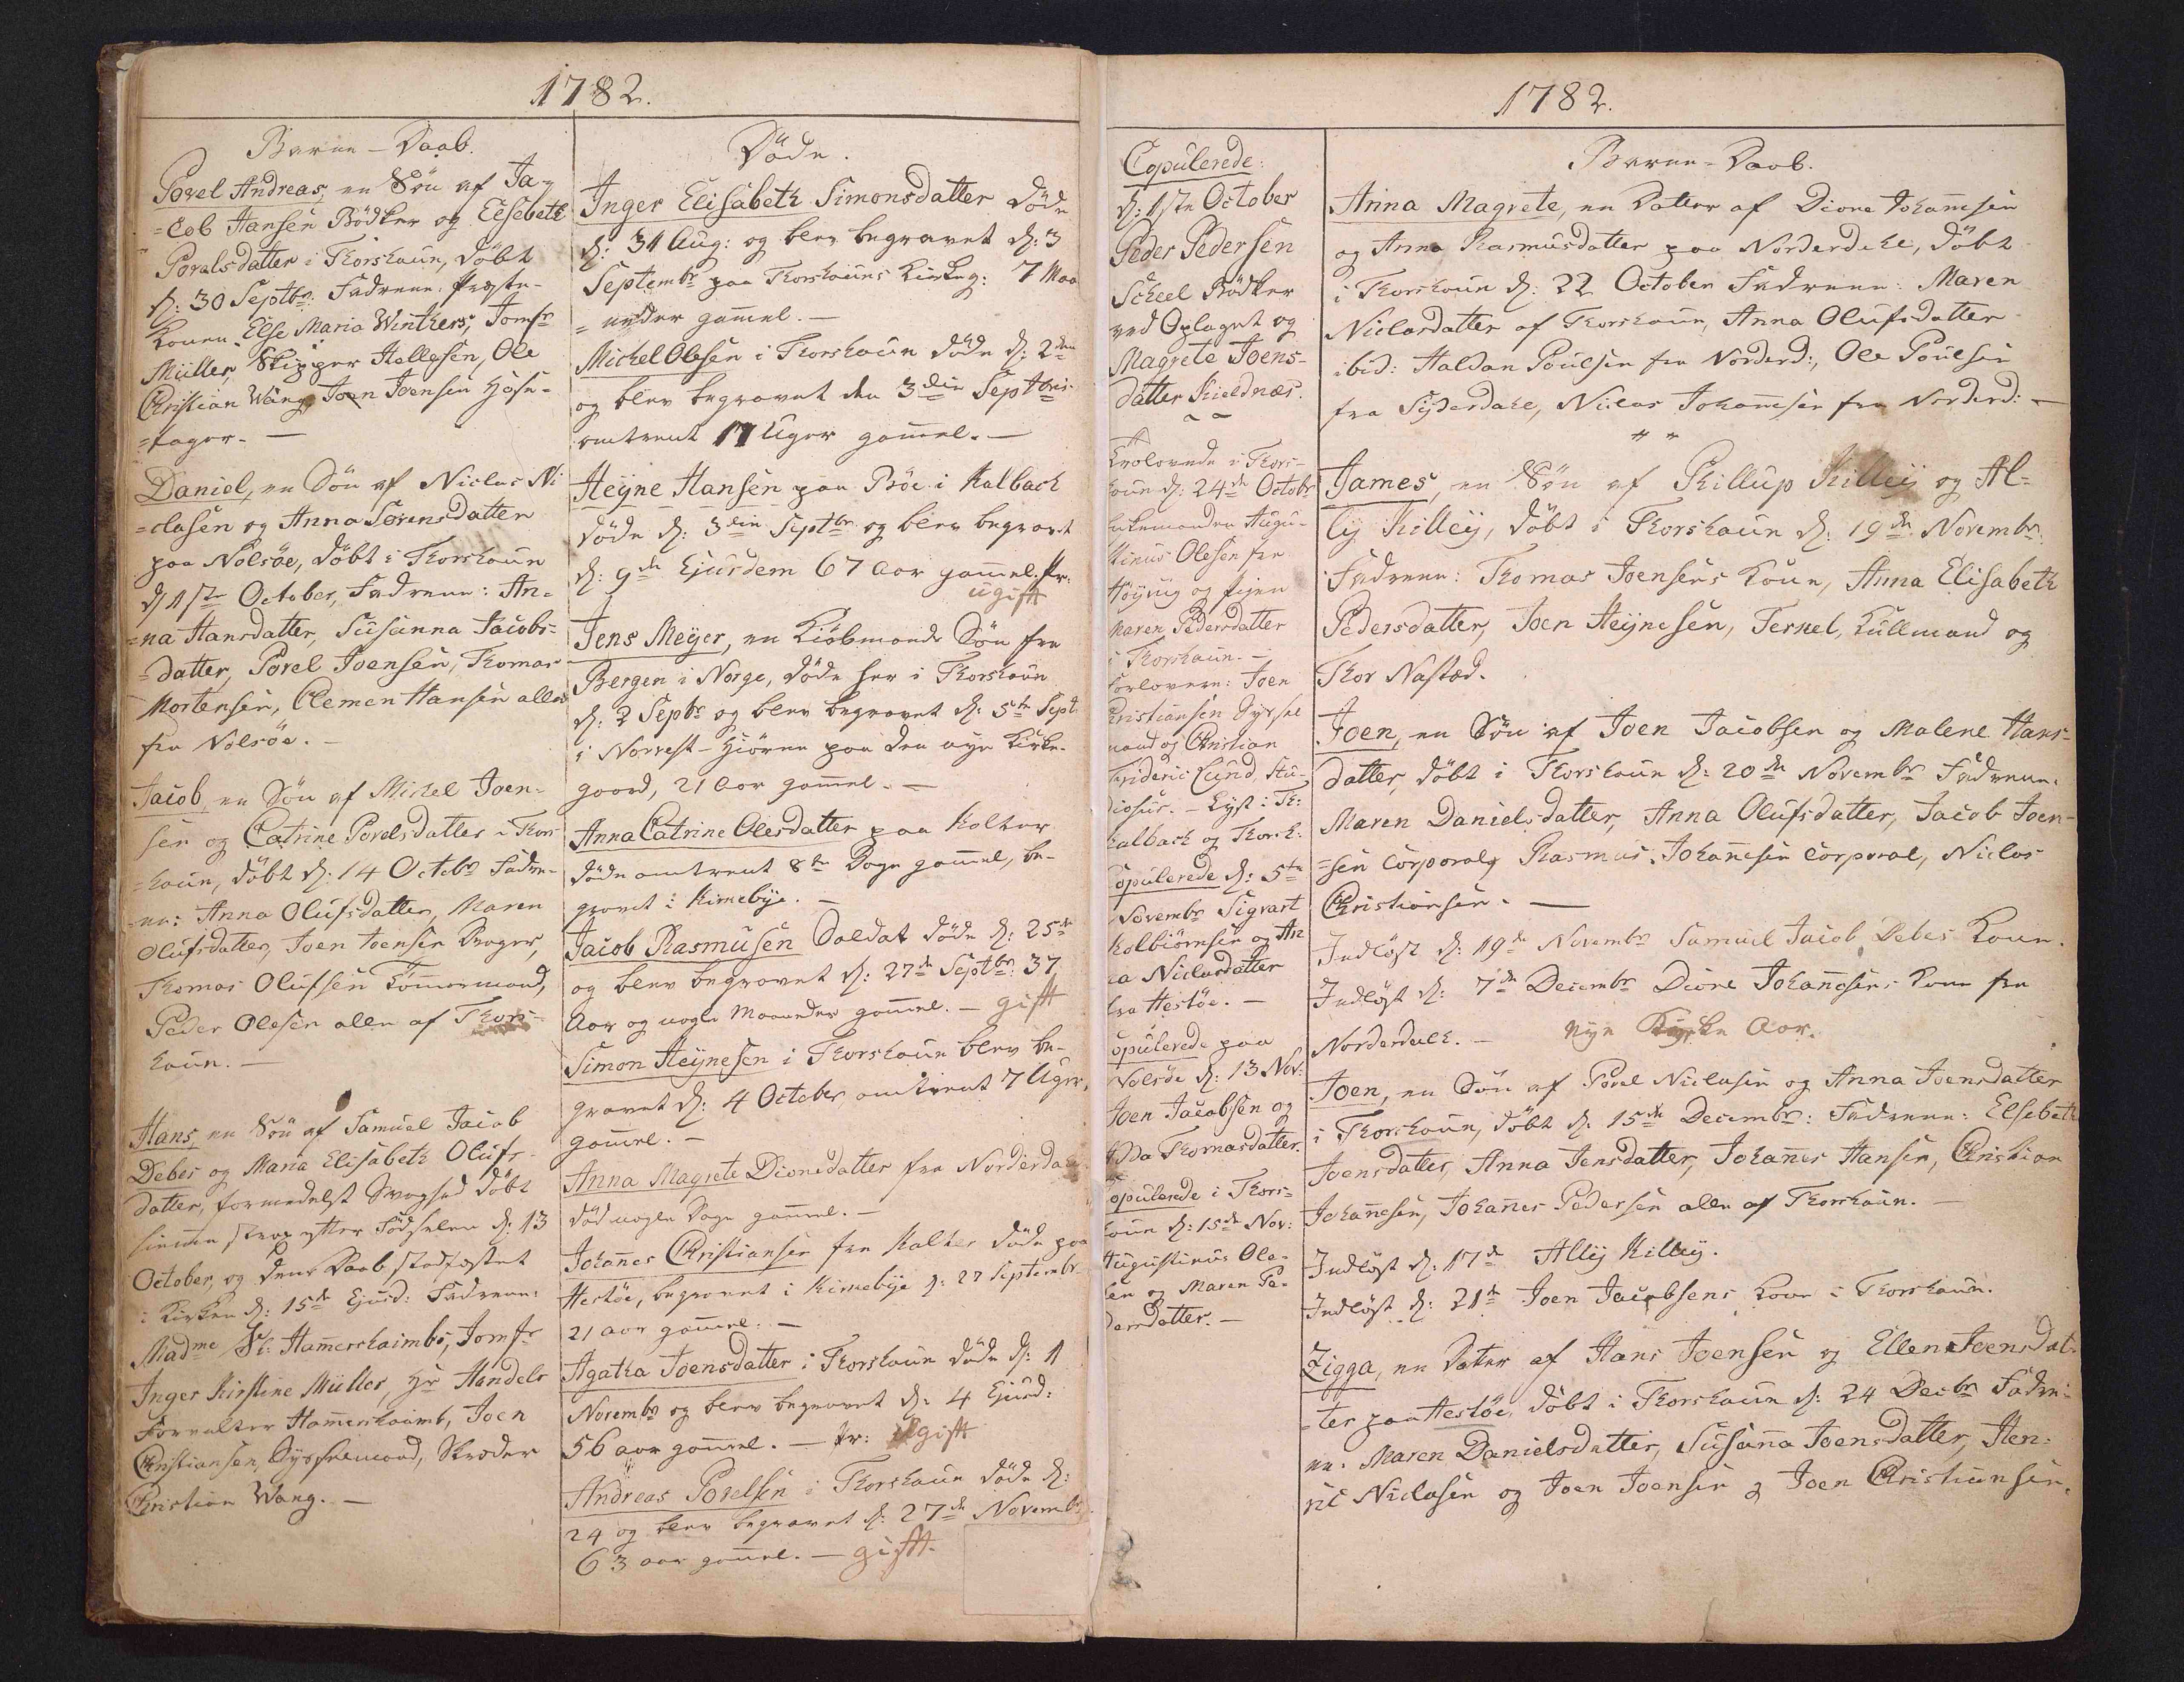 1782.
Barne-Daab.
Povel Andreas, en Søn af Ja-
=cob Hansen Bödker og Elsebeth
Povalsdatter i Thorshaun, döbt
d: 30 Septbr: Fadrene: Præste-
Konen Else Maria Winthers, Jomfr
Müller, Skipper Hellesen, Ole
Christian Wang, Joen Joensen
Daniel, en Sön af Niclas Ni
=clasen og Anna Sörensdatter
paa Nolsöe, döbt i Thorshaun
d 1ste October, Fadrene: An=
=na Hansdatter, Susanna Jacobs=
=datter, Povel Joensen, Thomas
Mortensen, Clemen Hansen alle
fra Nolsöe.
Jacob en Sön af Michel Joen=
sen og Catrine Povelsdatter i Thors
=haun, döbt d: 14 Octobr Fadre-
=ne: Anna Olufsdatter, Maren
Olufsdatter, Joen Joensen
Thomas Olufsen Tömmermand,
Peder Olesen alle af Thors=
haun. —
Hans, en Sön af Samuel Jacob
Debes og Maria Elisabeth Olufs-
datter, formedelst Svaghed döbt
hiemme strax efter Födselen d: 13
October, og dens Daab stadfæstet
i Kirken d: 15de Ejusd: Fadrene:
Madme Sl: Hamershaimbs, Jomfr
Inger Kirstine Müller, Hr Handels
Forvalter Hamershaimb, Joen
Christiansen, Sysselmand, Skræder
Christian Wang. —
Döde.
Inger Elisabeth Simonsdatter döde
d: 31 Aug: og blev begravet d: 3
Septembr paa Thorshauns Kirkeg: 7 Maa
=neder gamel. —
Michel Olesen i Thorshaun döde d: 2den
og blev begravet den 3die Septbris
omtrent 17 Uger gamel. —
Heyne Hansen paa Böe i Kalbach
döde d: 3die Septbr og blev begravet
d: 9de Ejusdem 67 Aar gamel.
ugift
Jens Meyer, en Kiöbmands Sön fra
Bergen i Norge, döde her i Thorshaun
d: 2 Sepbr og blev begravet d: 5te Sept:
i Norvest-Hiörne paa den nye Kirke-
gaard, 21 Aar gamel. —
Anna Catrine Olesdatter paa Kolter
döde omtrent 8te Dage gamel, be-
gravet i Kirnebye. —
Jacob Rasmusen Soldat döde d: 25de
og blev begravet d: 27de Septbr: 37
Aar og nogle Maaneder gamel. — gift
Simon Heynesen i Thorshaun blev be-
gravet d: 4 October omtrent 7 Uger
gamel. —
Anna Magrete Dionesdatter fra Norderdahl
död nogle Dage gamel. —
Johannes Christiansen fra Kolter döde paa
Hestöe, begravet i Kirnebye d: 27 Septembr
21 aar gamel. —
Agatha Joensdatter i Thorshaun döde d: 1
Novembr og blev begravet d: 4 Ejusd:
56 aar gamel. — ugift
Andreas Povelsen i Thorshaun döde d:
24 og blev begravet d: 27de Novembr
63 aar gamel. — gift.
1782.
Copulerede:
d: 1ste October
Peder Pedersen
Scheel Bödker
ved Oplaget og
Magrete Joens-
datter Kieldnæs.
Trolovede i Thors-
haun d: 24de Octobr
Enkemanden Augu-
stinus Olesen fra
Höjvig og Pigen
Maren Pedersdatter
i Thorshaun. —
Forlovere: Joen
Christiansen Syssel
mand og Christian
Frideric Lund, Stu-
diosus. — Lyst i Th:
Kalbach og Thorsh:
Copulerede d: 5te
Novembr Sigvart
Kolbiörnsen og An
na Niclasdatter
fra Hestöe. —
Copulerede paa
Nolsöe d: 13 Nov:
Joen Jacobsen og
Adda Thomasdatter.
Copulerede i Thors=
haun d: 15de Nov:
Augustinus Ole-
sen og Maren Pe-
dersdatter. —
Barne-Daab.
Anna Magrete, en Datter af Dione Johannsen
og Anna Rasmusdatter paa Norderdahl, döbt
i Thorshaun d: 22 October Fadrene: Maren
Niclasdatter af Thorshaun, Anna Olufsdatter
ibid: Haldan Poulsen fra Norderd:, Ole Poulsen
fra Syderdahl, Niclas Johannesen fra Norderd: —
James, en Sön af Phillup Killey og Al-
ly Killey, döbt i Thorshaun d: 19de Novembr
Fadrene: Thomas Joensens Kone, Anna Elisabeth
Pedersdatter, Joen Heynesen, Fersel, Kullmand og
Thor Nastad.
Joen, en Sön af Joen Jacobsen og Malene Hans=
datter, döbt i Thorshaun d: 20de Novembr Fadrene:
Maren Danielsdatter, Anna Olufsdatter, Jacob Joen-
=sen Corporal, Rasmus Johannesen Corporal, Niclas
Christiansen. —
Indløst d: 19de Novembr Samuel Jacob Debes Kone.
Indløst d: 7de Decembr Dione Johannesens Kone fra
Norderdahl. — Nye Kirke Aar.
Joen, en Sön af Povel Niclasen og Anna Joensdatter
i Thorshaun, döbt d: 15de Decembr: Fadrene: Elsebeth
Joensdatter, Anna Jensdatter, Johannes Hansen, Christian
Johannesen, Johannes Pedersen alle af Thorshaun. —
Indløst d: 17de Ally Killey.
Indløst d: 21de Joen Jacobsens Kone i Thorshaun.
Zigga, en Datter af Hans Joensen og Ellen Joensdat-
=ter paa Hestöe, döbt i Thorshaun d: 24 Decbr Fadre-
ne: Maren Danielsdatter, Susanna Joensdatter, Hen-
ric Niclasen og Joen Joensen og Joen Christiansen.